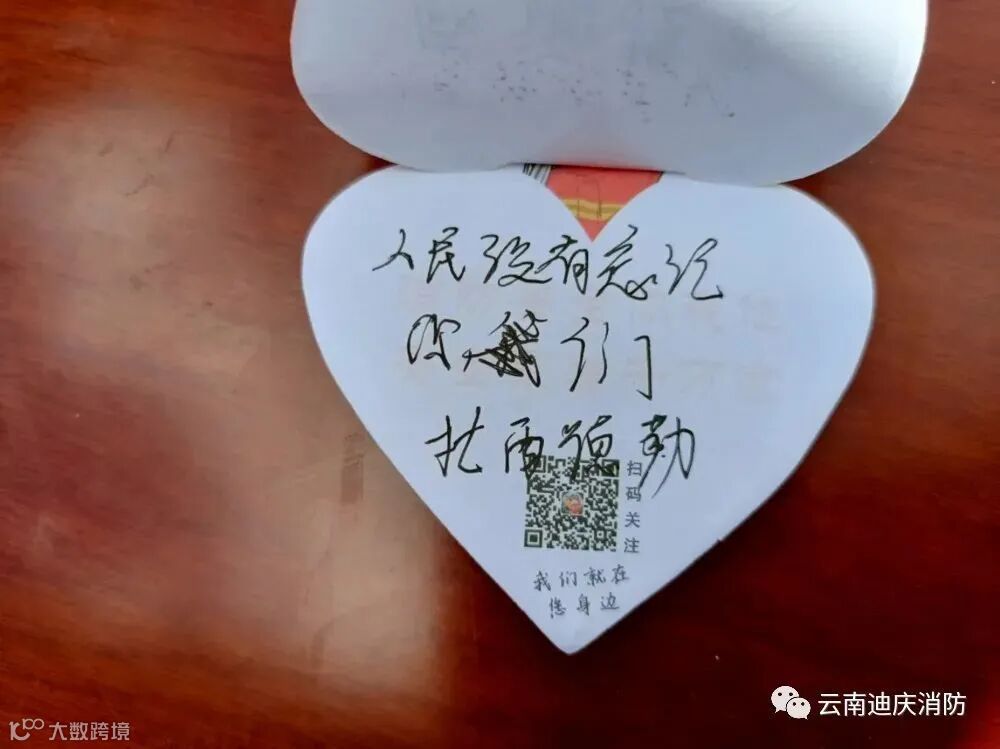 人民没有忘记
你们
扎西德勒
扫码关注
我们就在
您身边
云南迪庆消防
大数跨境